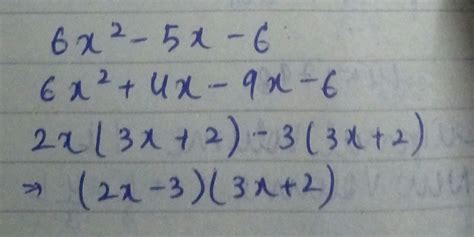 6x² - 5x - 6
6x² + 4x - 9x - 6
2x(3x + 2) - 3(3x + 2)
⇒ (2x - 3)(3x + 2)